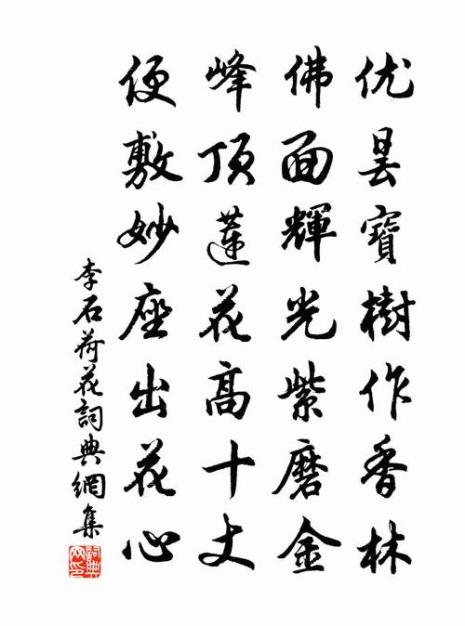 优昙寶樹作香林
佛面輝光紫磨金
峰頂蓮花高十丈
便敷妙座出花心
李石荷花詞典網集
詞典網印